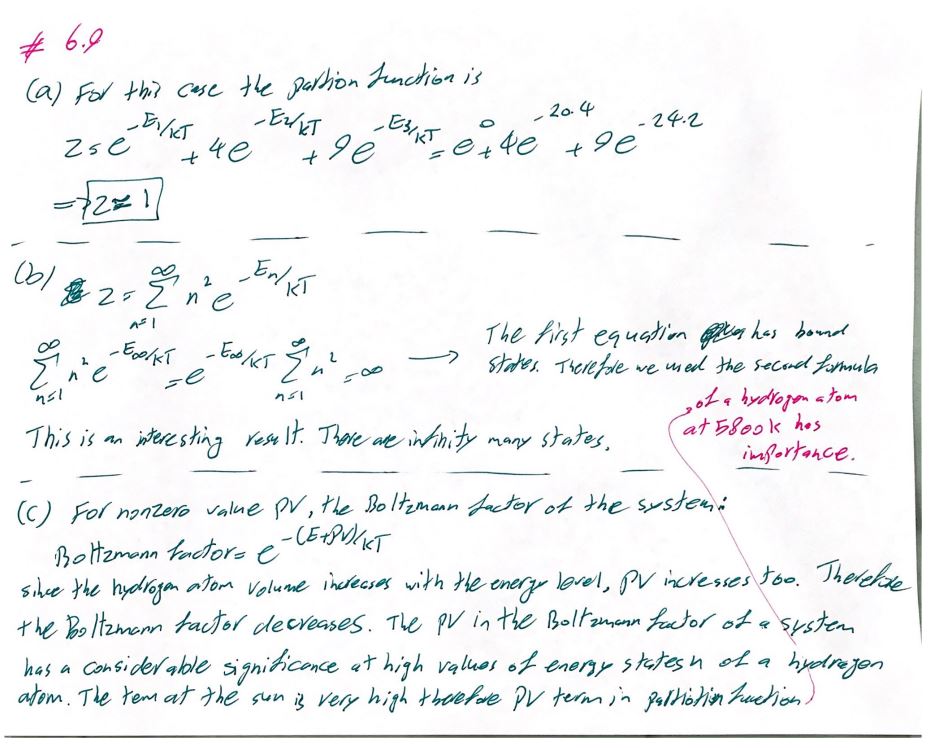 # 6.9
(a) For this case the partion function is
Z = e^{-E₁/kT} + 4e^{-E₂/kT} + 9e^{-E₃/kT} = e^0 + 4e^{-20.4} + 9e^{-24.2}
⇒ Z ≈ 1
(b) Z = ∑_{n=1}^{∞} n² e^{-Eₙ/kT}
∑_{n=1}^{∞} n² e^{-E∞/kT} = e^{-E∞/kT} ∑_{n=1}^{∞} n² = ∞ → The first equation has bound
states. Therefore we used the second formula
This is an interesting result. There are infinity many states.
(c) For nonzero value PV, the Boltzmann factor of the system:
Boltzmann factor = e^{-(E+PV)/kT}
since the hydrogen atom volume increases with the energy level, PV increases too. Therefore
the Boltzmann factor decreases. The PV in the Boltzmann factor of a system
has a considerable significance at high values of energy states n of a hydrogen
atom. The tem at the sun is very high therefore PV term in function
of a hydrogen atom
at 5800k has
importance.